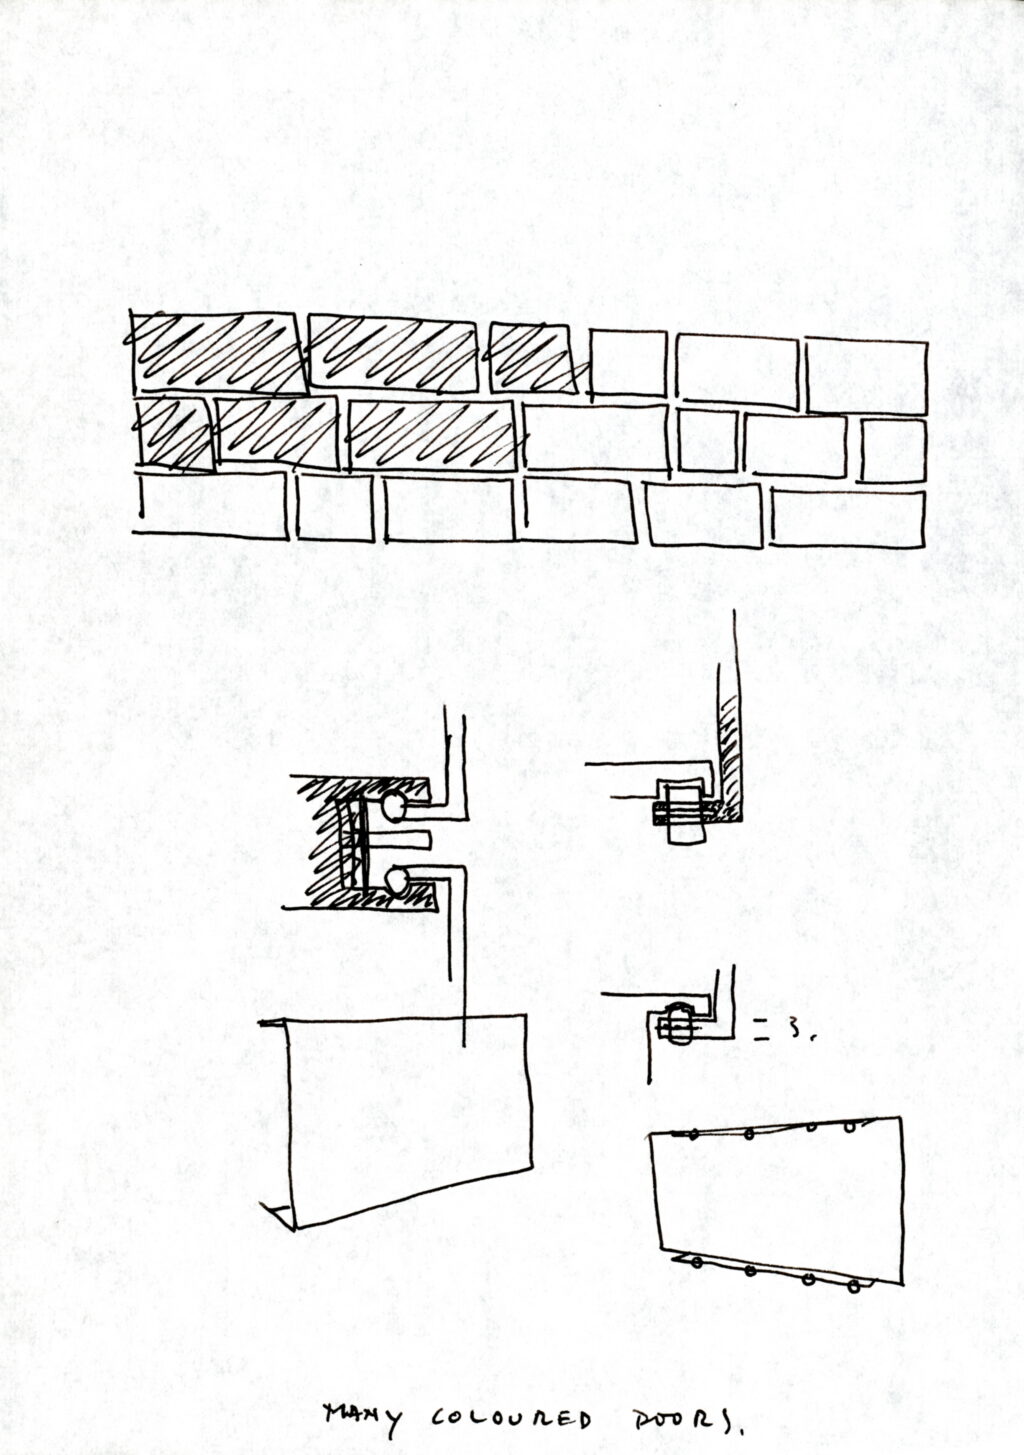 = 3.
MANY COLOURED DOORS.